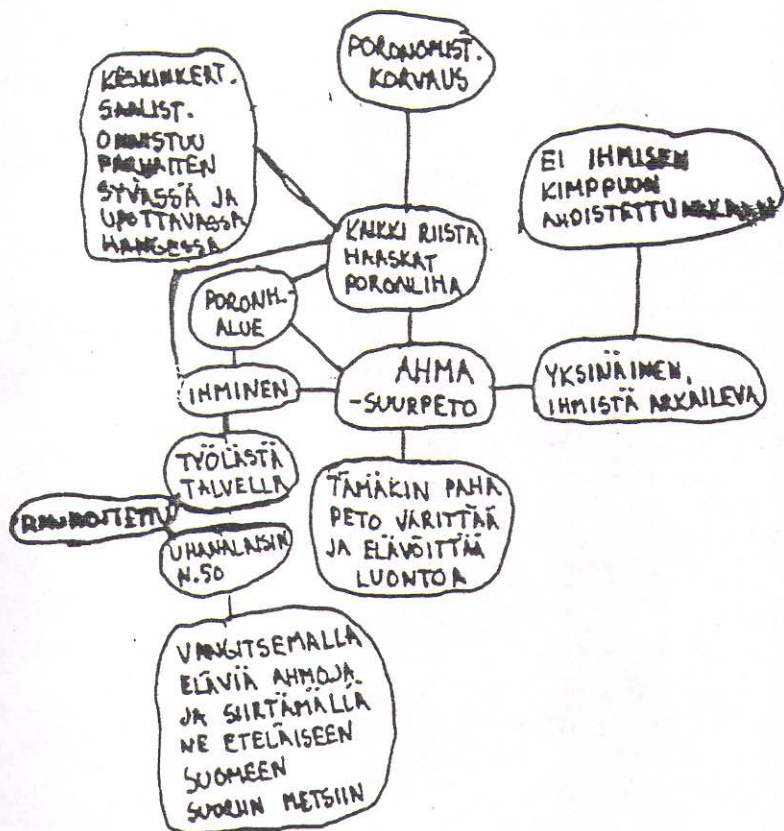 PORONOMIST.
KORVAUS
KESKINKERT.
SAALIST.
ONNISTUU
PARHAITEN
SYVÄSSÄ JA
UPOTTAVASSA
HANGESSA
EI IHMISEN
KIMPPUUN
AHDISTETTUNAKAAN
KAIKKI RIISTA
HAASKAT
PORONLIHA
PORONH.
ALUE
IHMINEN
AHMA
-SUURPETO
YKSINÄINEN,
IHMISTÄ ARKAILEVA
TYÖLÄSTÄ
TALVELLA
RAUHOITETTU
UHANALAISIN
N.50
TÄMÄKIN PAHA
PETO VÄRITTÄÄ
JA ELÄVÖITTÄÄ
LUONTOA
VANGITSEMALLA
ELÄVIÄ AHMOJA
JA SIIRTÄMÄLLÄ
NE ETELÄISEEN
SUOMEEN
SUURIIN METSIIN